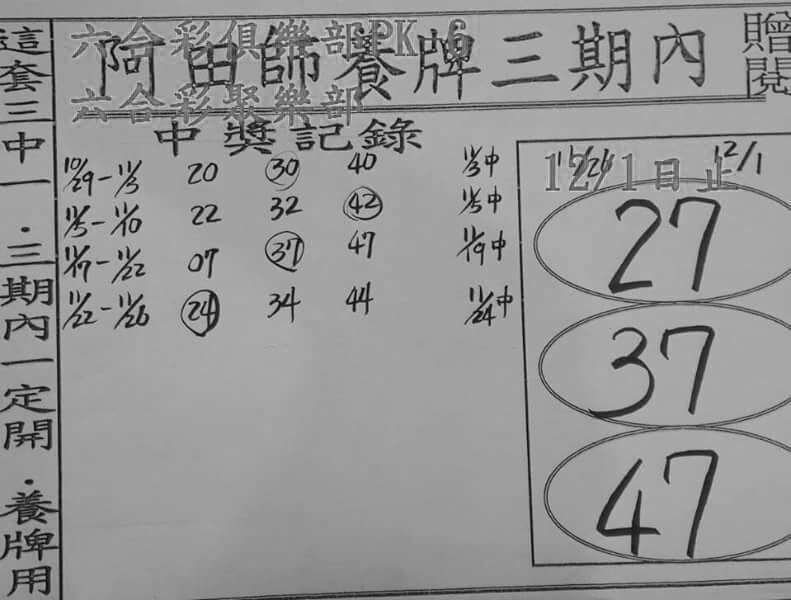 六合彩俱樂部PK 6
阿田師養牌三期內
贈閱
六合彩聚樂部
中獎記錄
10/29-11/3 20 30 40 11/3中
11/5-11/10 22 32 42 11/5中
11/17-11/22 07 37 47 11/19中
11/22-11/26 24 34 44 11/24中
12/1
12/1日止
27
37
47
這套三中一．三期內一定開．養牌用